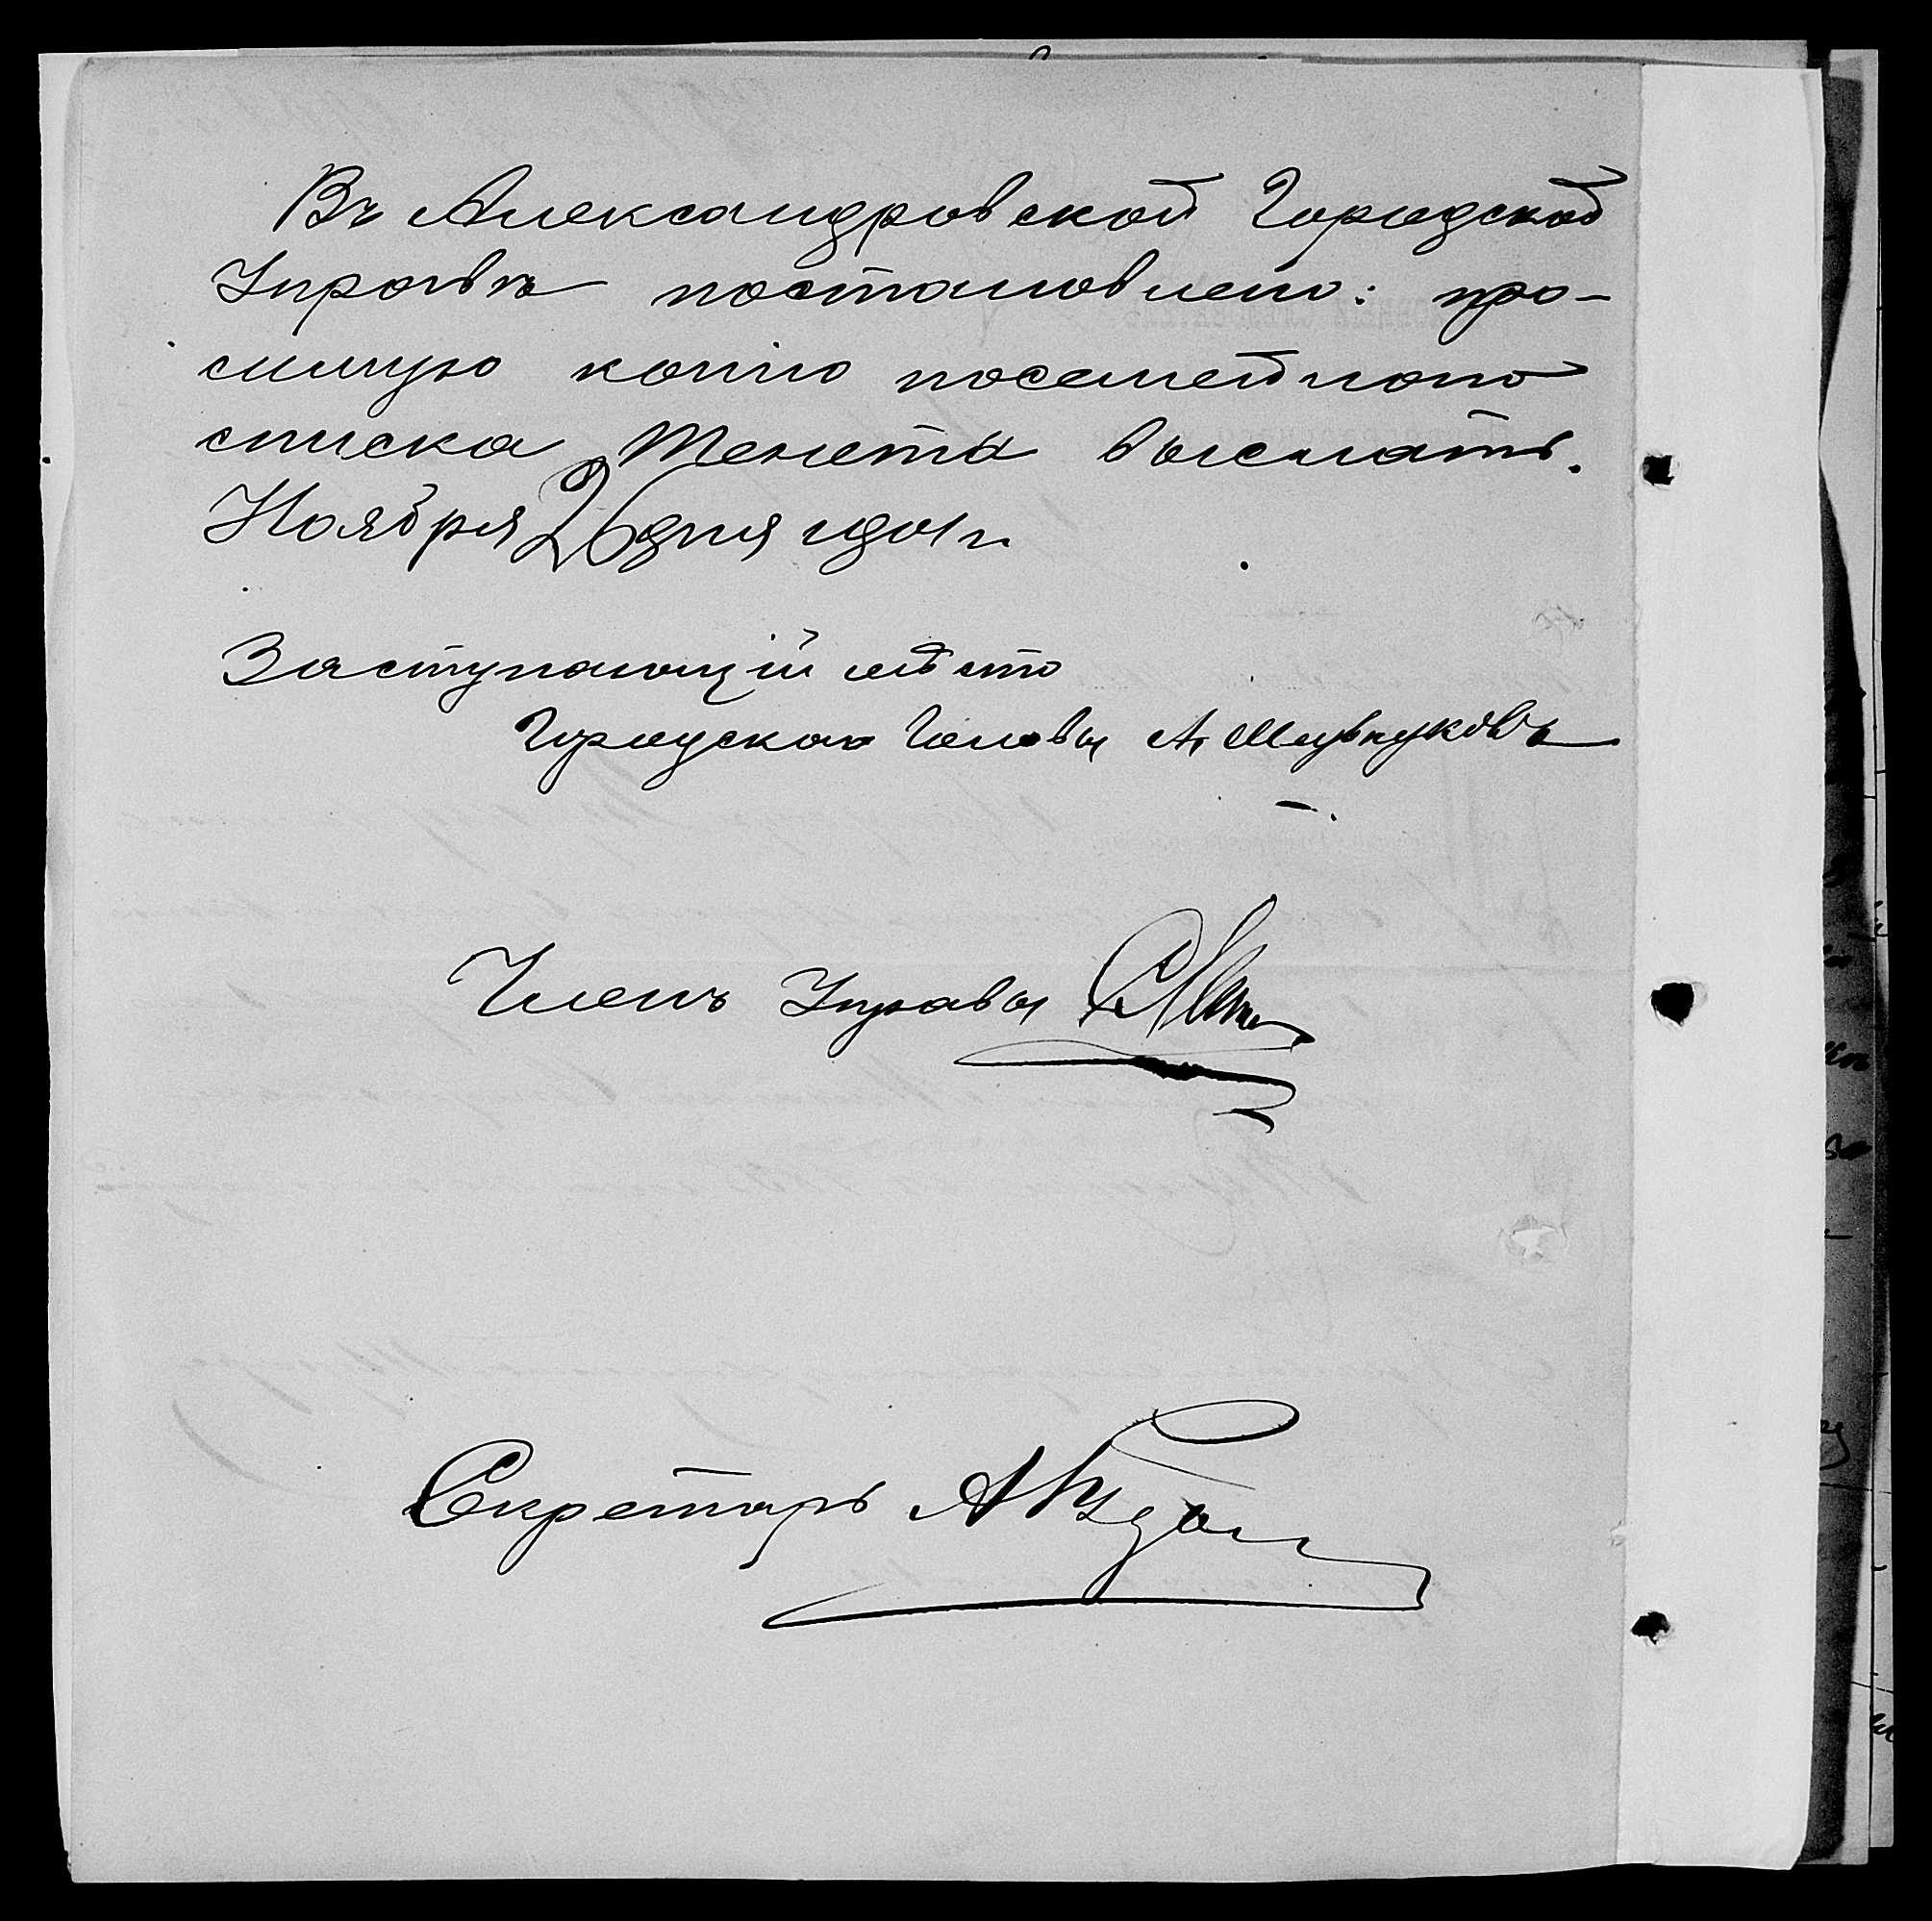 Въ Александровской Городской
Управѣ постановлено: про-
симую копію посемейнаго
списка Тенета выслать.
Ноября 26 дня 1901 г.
Заступающій мѣсто
Городского Головы А.
Членъ Управы
Секретарь А